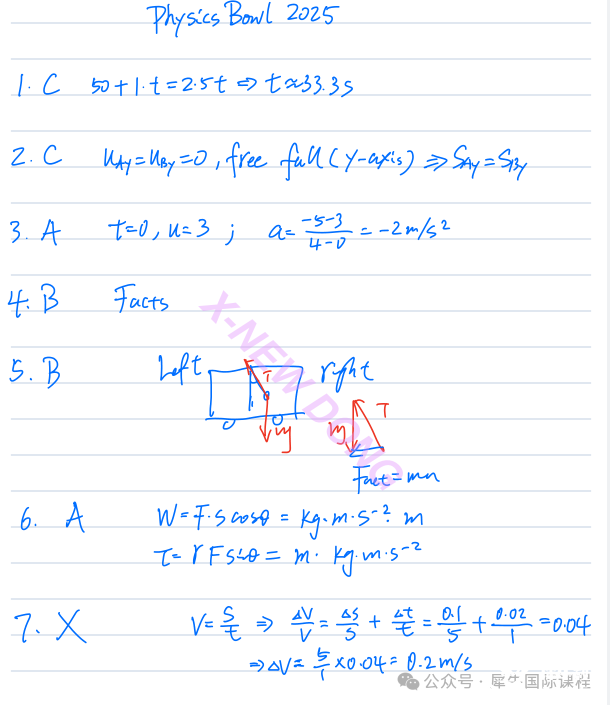 Physics Bowl 2025
1. C 50+1·t=2.5t ⇒ t≈33.3s
2. C uAy=uBy=0, free fall (y-axis) ⇒ SAy=SBy
3. A t=0, u=3 ; a= (-5-3)/(4-0) = -2m/s²
4. B Facts
5. B Left right
T T
mg mg
Fnet=ma
6. A W=F·s cosθ = kg·m·s⁻²·m
τ= r F sinθ = m· kg·m·s⁻²
7. X V= S/t ⇒ ΔV/V = ΔS/S + Δt/t = 0.1/5 + 0.02/1 = 0.04
⇒ΔV= 5/1 ×0.04= 0.2m/s
X-NEW DONG
公众号·犀牛国际课程